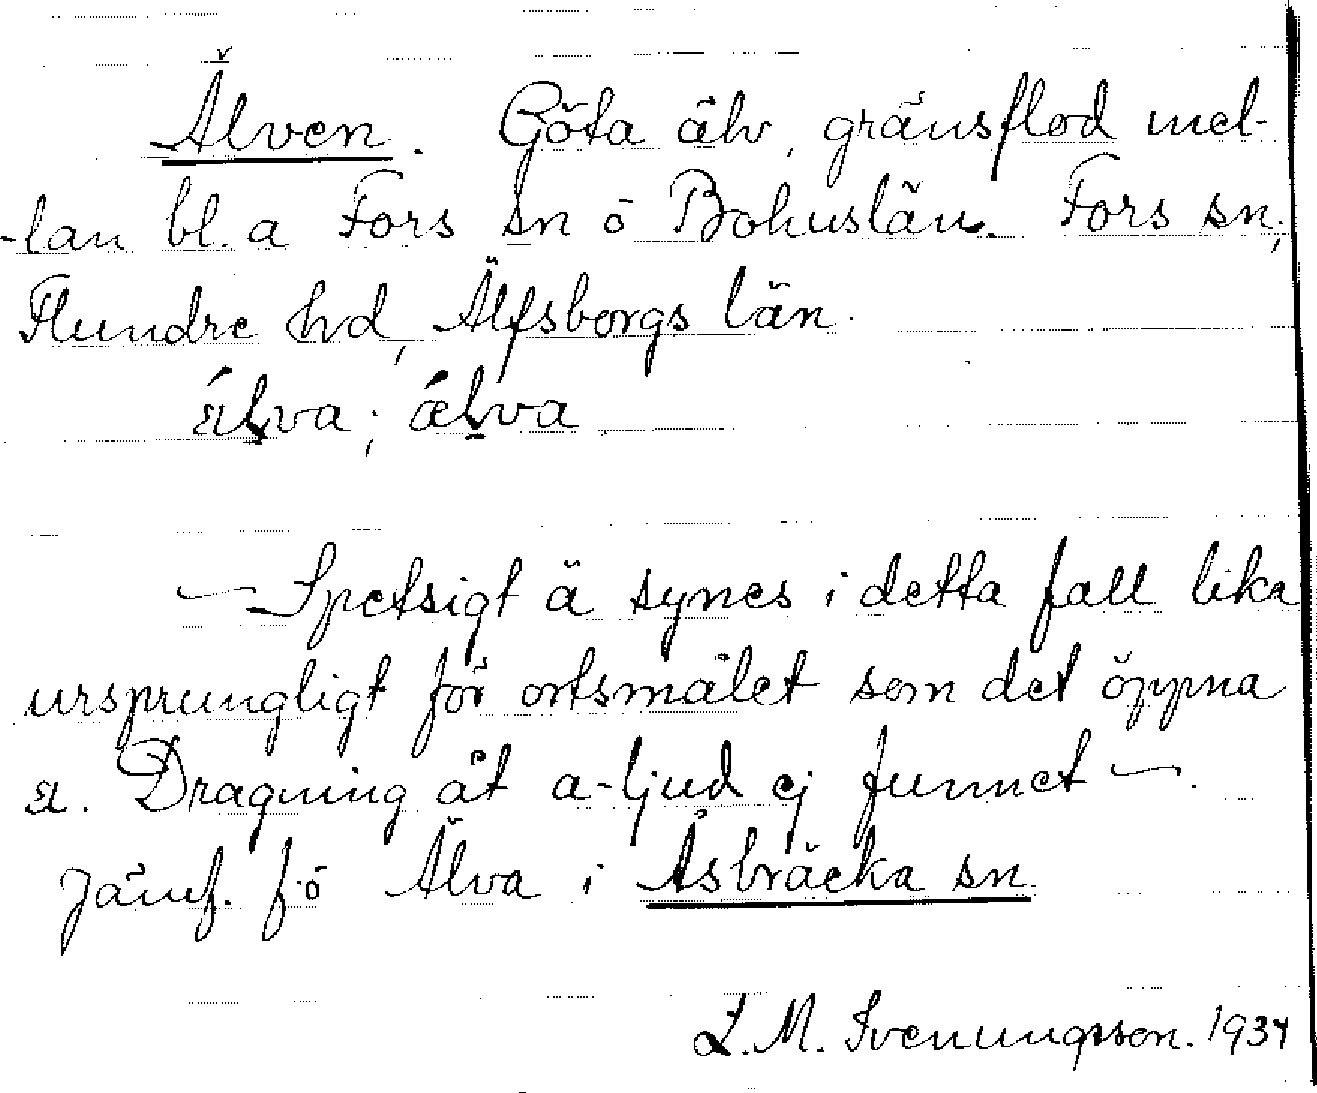 Älven. Göta älv, gränsflod mel-
-lan bl. a Fors sn o Bohuslän. Fors sn,
Flundre hd, Älfsborgs län.
ä́lva; ǽlva
— Spetsigt ä synes i detta fall lika
ursprungligt för ortsmålet som det öppna
Dragning åt a-ljud ej funnet —.
Jämf. fö Älva i Åsbräcka sn.
L. M. Svenungsson. 1934